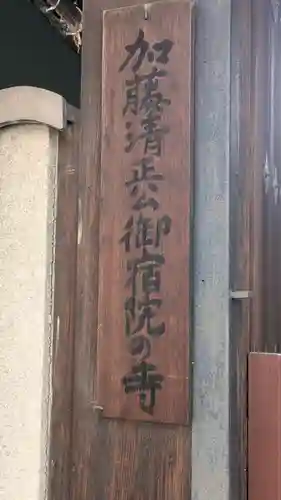 加藤清兵公御宿院の寺